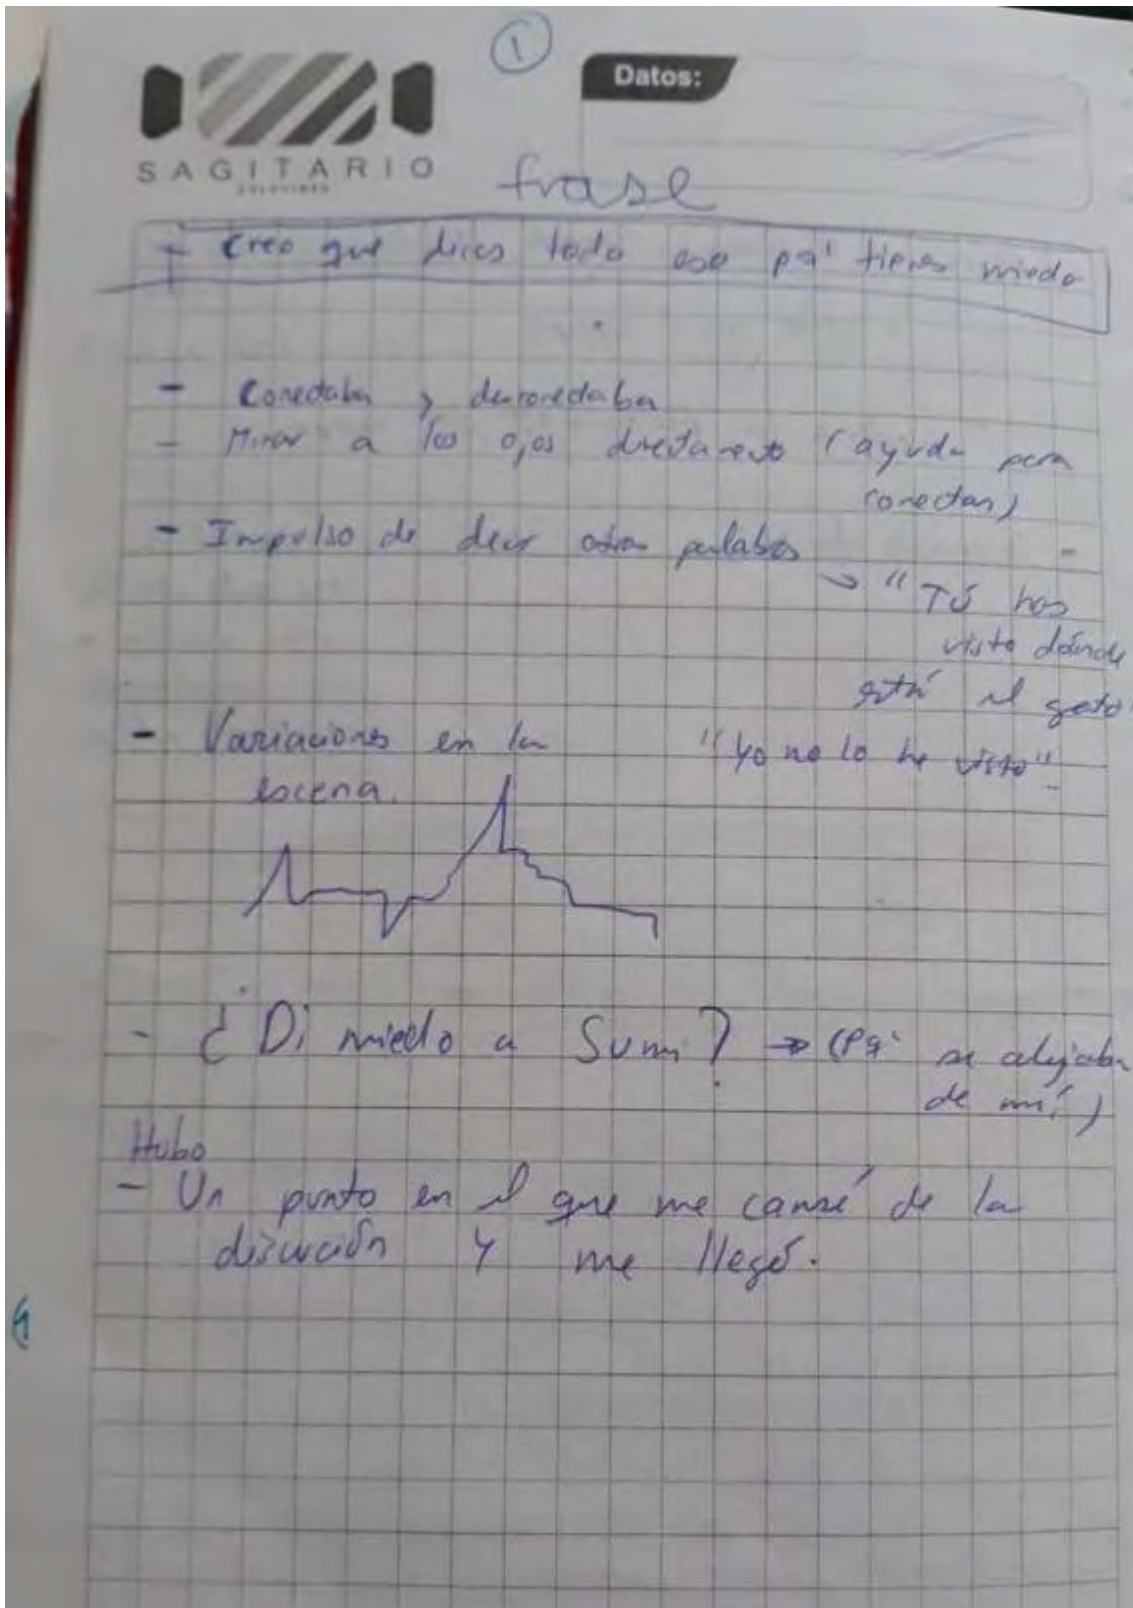 1
Datos:
SAGITARIO
frase
+ Creo que dices todo eso pq' tienes miedo
- Conectaba y desconectaba
- Mirar a los ojos directamente (ayuda para
conectar)
- Impulso de decir otras palabras
→ "Tú has
visto dónde
está el gato"
- Variaciones en la
escena.
"Yo no lo he visto".
- ¿Di miedo a Sumi? → (pq' se alejaba
de mí)
Hubo
- Un punto en el que me cansé de la
discución y me llegó.